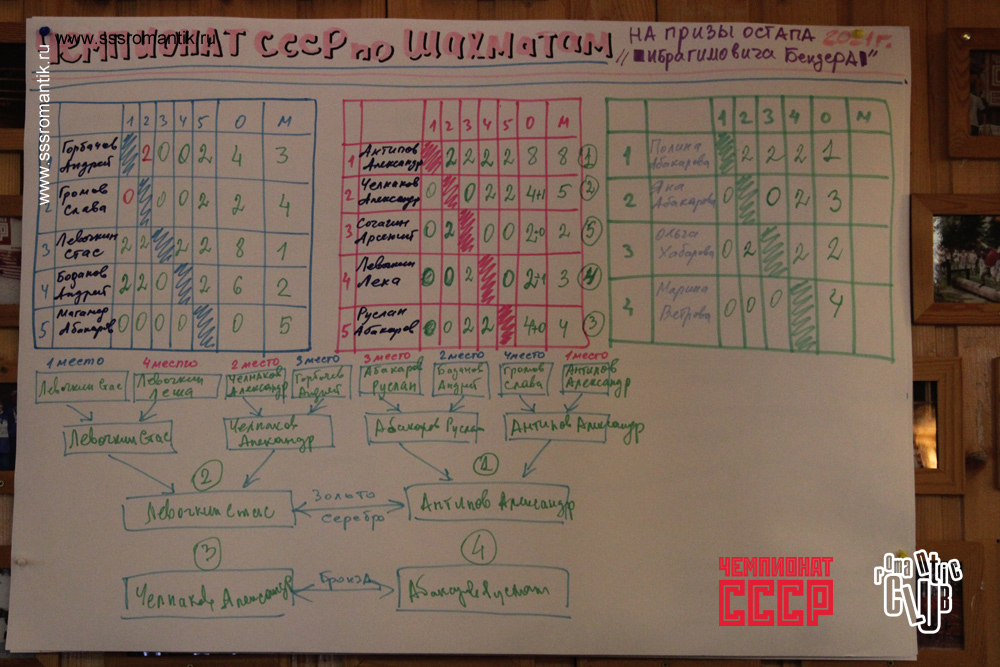 www.sssromantik.ru
www.sssromantik.ru
ЧЕМПИОНАТ СССР по ШАХМАТАМ
НА ПРИЗЫ ОСТАПА
Ибрагимовича Бендера"
1 2 3 4 5 О М
Горбачёв Андрей 2 0 0 2 4 3
2 Громов Слава 0 0 0 2 2 4
3 Левочкин Стас 2 2 2 2 8 1
4 Боданов Андрей 2 2 0 2 6 2
5 Магомед Абакаров 0 0 0 0 0 5
1 2 3 4 5 О М
1 Антипов Александр 2 2 2 2 8 8 1
2 Челпаков Александр 0 0 2 2 4+1 5 2
3 Арсений 0 2 0 0 2+0 2 5
4 Левочкин Леха 0 0 2 0 2+1 3 4
5 Руслан Абакаров 0 0 2 2 4+0 4 3
1 2 3 4 О М
1 Полина Абакарова 2 2 2 1
2 Яна Абакарова 0 0 2 3
3 Ольга Хабарова 0 2 2 2
4 Марина Ветрова 0 0 0 4
1 место 4 место 2 место 3 место 3 место 2 место 4 место 1 место
Левочкин Стас Левочкин Леша Челпаков Александр Горбачев Андрей Абакаров Руслан Боданов Андрей Громов Слава Антипов Александр
Левочкин Стас Челпаков Александр Абакаров Руслан Антипов Александр
2 1
Левочкин Стас Золото Серебро Антипов Александр
3 4
Челпаков Александр Бронза Абакаров Руслан
ЧЕМПИОНАТ
СССР
romantic
CLUB